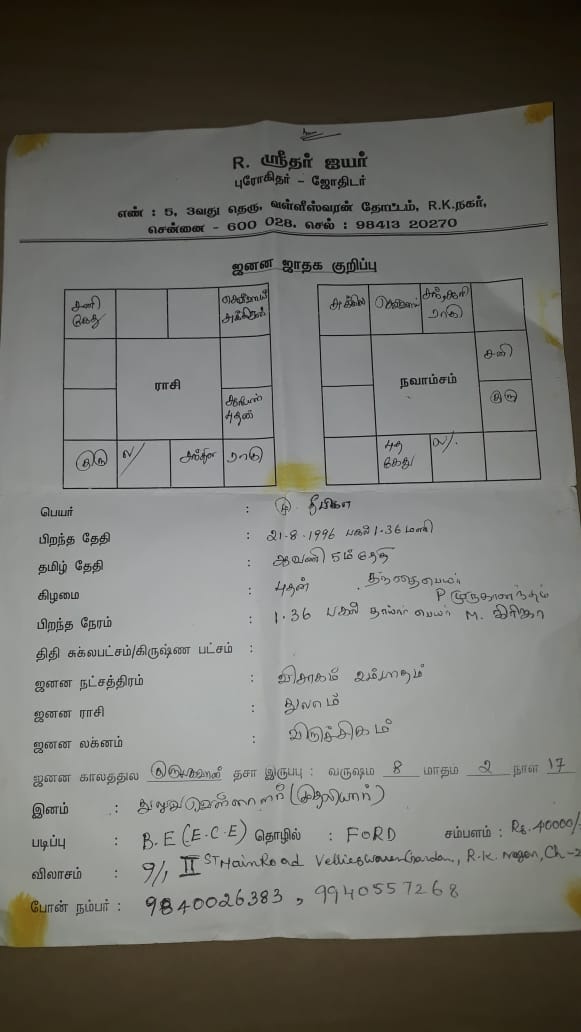 R. ஸ்ரீதர் ஐயர்
புரோகிதர் - ஜோதிடர்
எண் : 5, 3வது தெரு, வள்ளீஸ்வரன் தோட்டம், R.K.நகர்,
சென்னை - 600 028. செல் : 98413 20270
ஜனன ஜாதக குறிப்பு
சனி கேது
செவ்வாய் சுக்கிரன்
ராசி
புதன்
குரு
ல/
சந்திர
ராகு
ராகு
நவாம்சம்
சனி
குரு
புத கேது
ல/.
பெயர் :
பிறந்த தேதி : 21-8-1996 பகல் 1.36 மணி
தமிழ் தேதி : ஆவணி 5ம் தேதி
கிழமை : புதன் தந்தை பெயர்
பிறந்த நேரம் : 1.36 பகல் தாயார் பெயர் M.
திதி சுக்லபட்சம்/கிருஷ்ண பட்சம் :
ஜனன நட்சத்திரம் : விசாகம் 2ம்பாதம்
ஜனன ராசி : துலாம்
ஜனன லக்னம் : விருச்சிகம்
ஜனன காலத்துல தசா இருப்பு : வருஷம் 8 மாதம் 2 நாள் 17
இனம் : துளுவவெள்ளாளர் (முதலியார்)
படிப்பு : B.E (E.C.E) தொழில் : FORD சம்பளம் : Rs. 40000/-
விலாசம் : 9/1, II ST Main Road Garden, R.K. Nagar, Ch-2
போன் நம்பர் : 9840026383, 9940557268